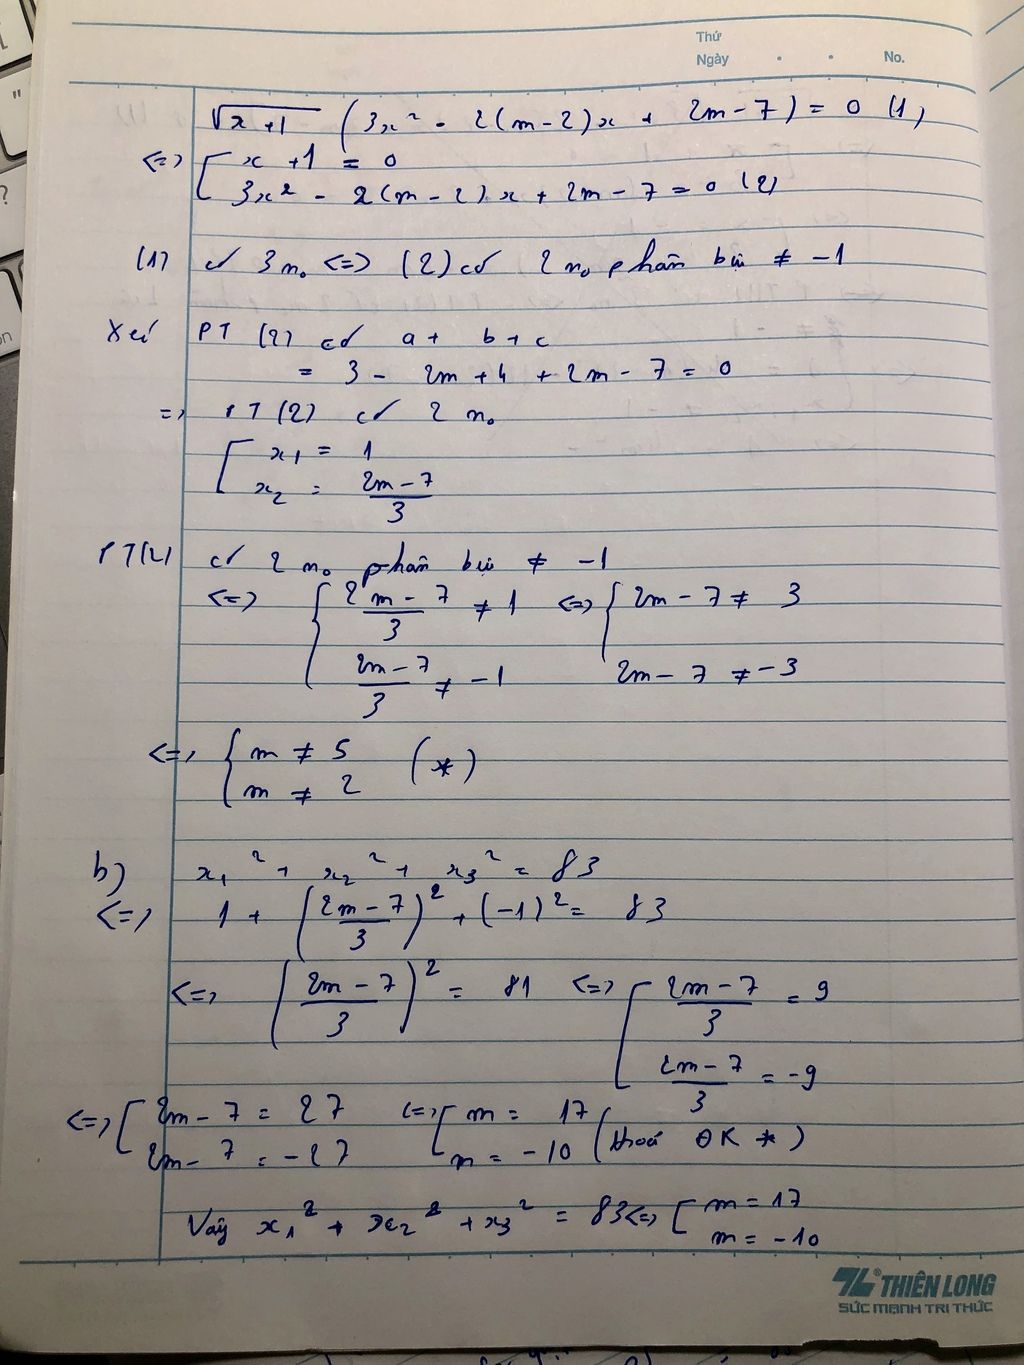 Thứ
Ngày . . No.
√(x+1) (3x² - 2(m-2)x + 2m-7) = 0 (1)
<=> [ x+1 = 0
3x² - 2(m-2)x + 2m-7 = 0 (2)
(1) có 3 n₀ <=> (2) có 2 n₀ phân biệ ≠ -1
Xét PT (2) có a + b + c
= 3 - 2m + 4 + 2m - 7 = 0
=> PT (2) có 2 n₀
[ x₁ = 1
x₂ = (2m-7)/3
PT(2) có 2 n₀ phân biệ ≠ -1
<=> { (2m-7)/3 ≠ 1 <=> { 2m-7 ≠ 3
(2m-7)/3 ≠ -1 2m-7 ≠ -3
<=> { m ≠ 5 (*)
m ≠ 2
b) x₁² + x₂² + x₃² = 83
<=> 1 + ((2m-7)/3)² + (-1)² = 83
<=> ((2m-7)/3)² = 81 <=> [ (2m-7)/3 = 9
(2m-7)/3 = -9
<=> [ 2m-7 = 27 <=> [ m = 17
2m-7 = -27 m = -10 (thoả ĐK *)
Vậy x₁² + x₂² + x₃² = 83 <=> [ m = 17
m = -10
THIÊN LONG
SỨC MẠNH TRI THỨC